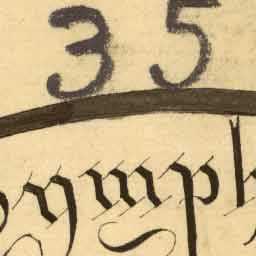 35
ymph